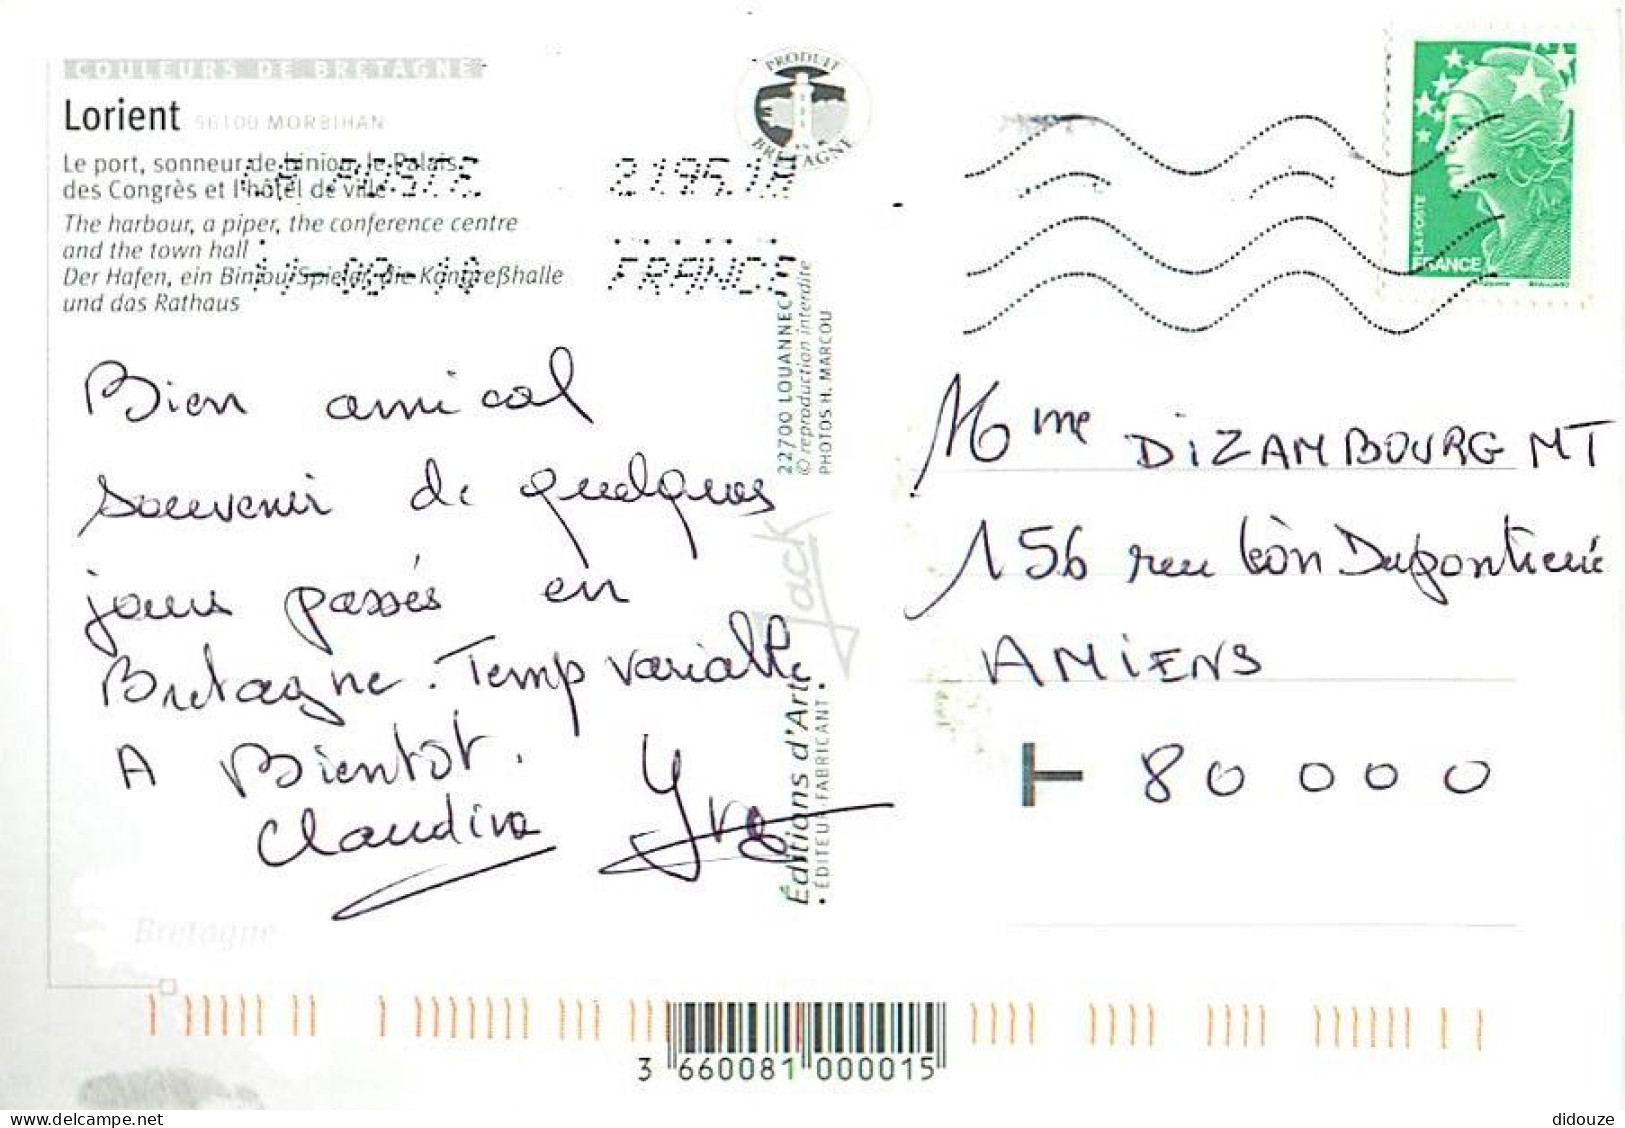 COULEURS DE BRETAGNE
Lorient 56100 MORBIHAN
Le port, sonneur de biniou, le Palais
des Congrès et l'hôtel de ville
The harbour, a piper, the conference centre
and the town hall
Der Hafen, ein Biniou-Spieler, die Kongreßhalle
und das Rathaus
PRODUIT
EN
BRETAGNE
LA POSTE
21954A
FRANCE
LA POSTE
FRANCE
BEAUJARD
22700 LOUANNEC
© reproduction interdite
PHOTOS H. MARCOU
Jack
Éditions d'Art
• ÉDITEUR-FABRICANT •
Bien amical
souvenir de quelques
jours passés en
Bretagne. Temp variable
A Bientôt.
Claudine Yves
Mme DIZAMBOURG MT
156 rue Léon Dupontreué
AMIENS
T 80000
Bretagne
3 660081 000015
didouze